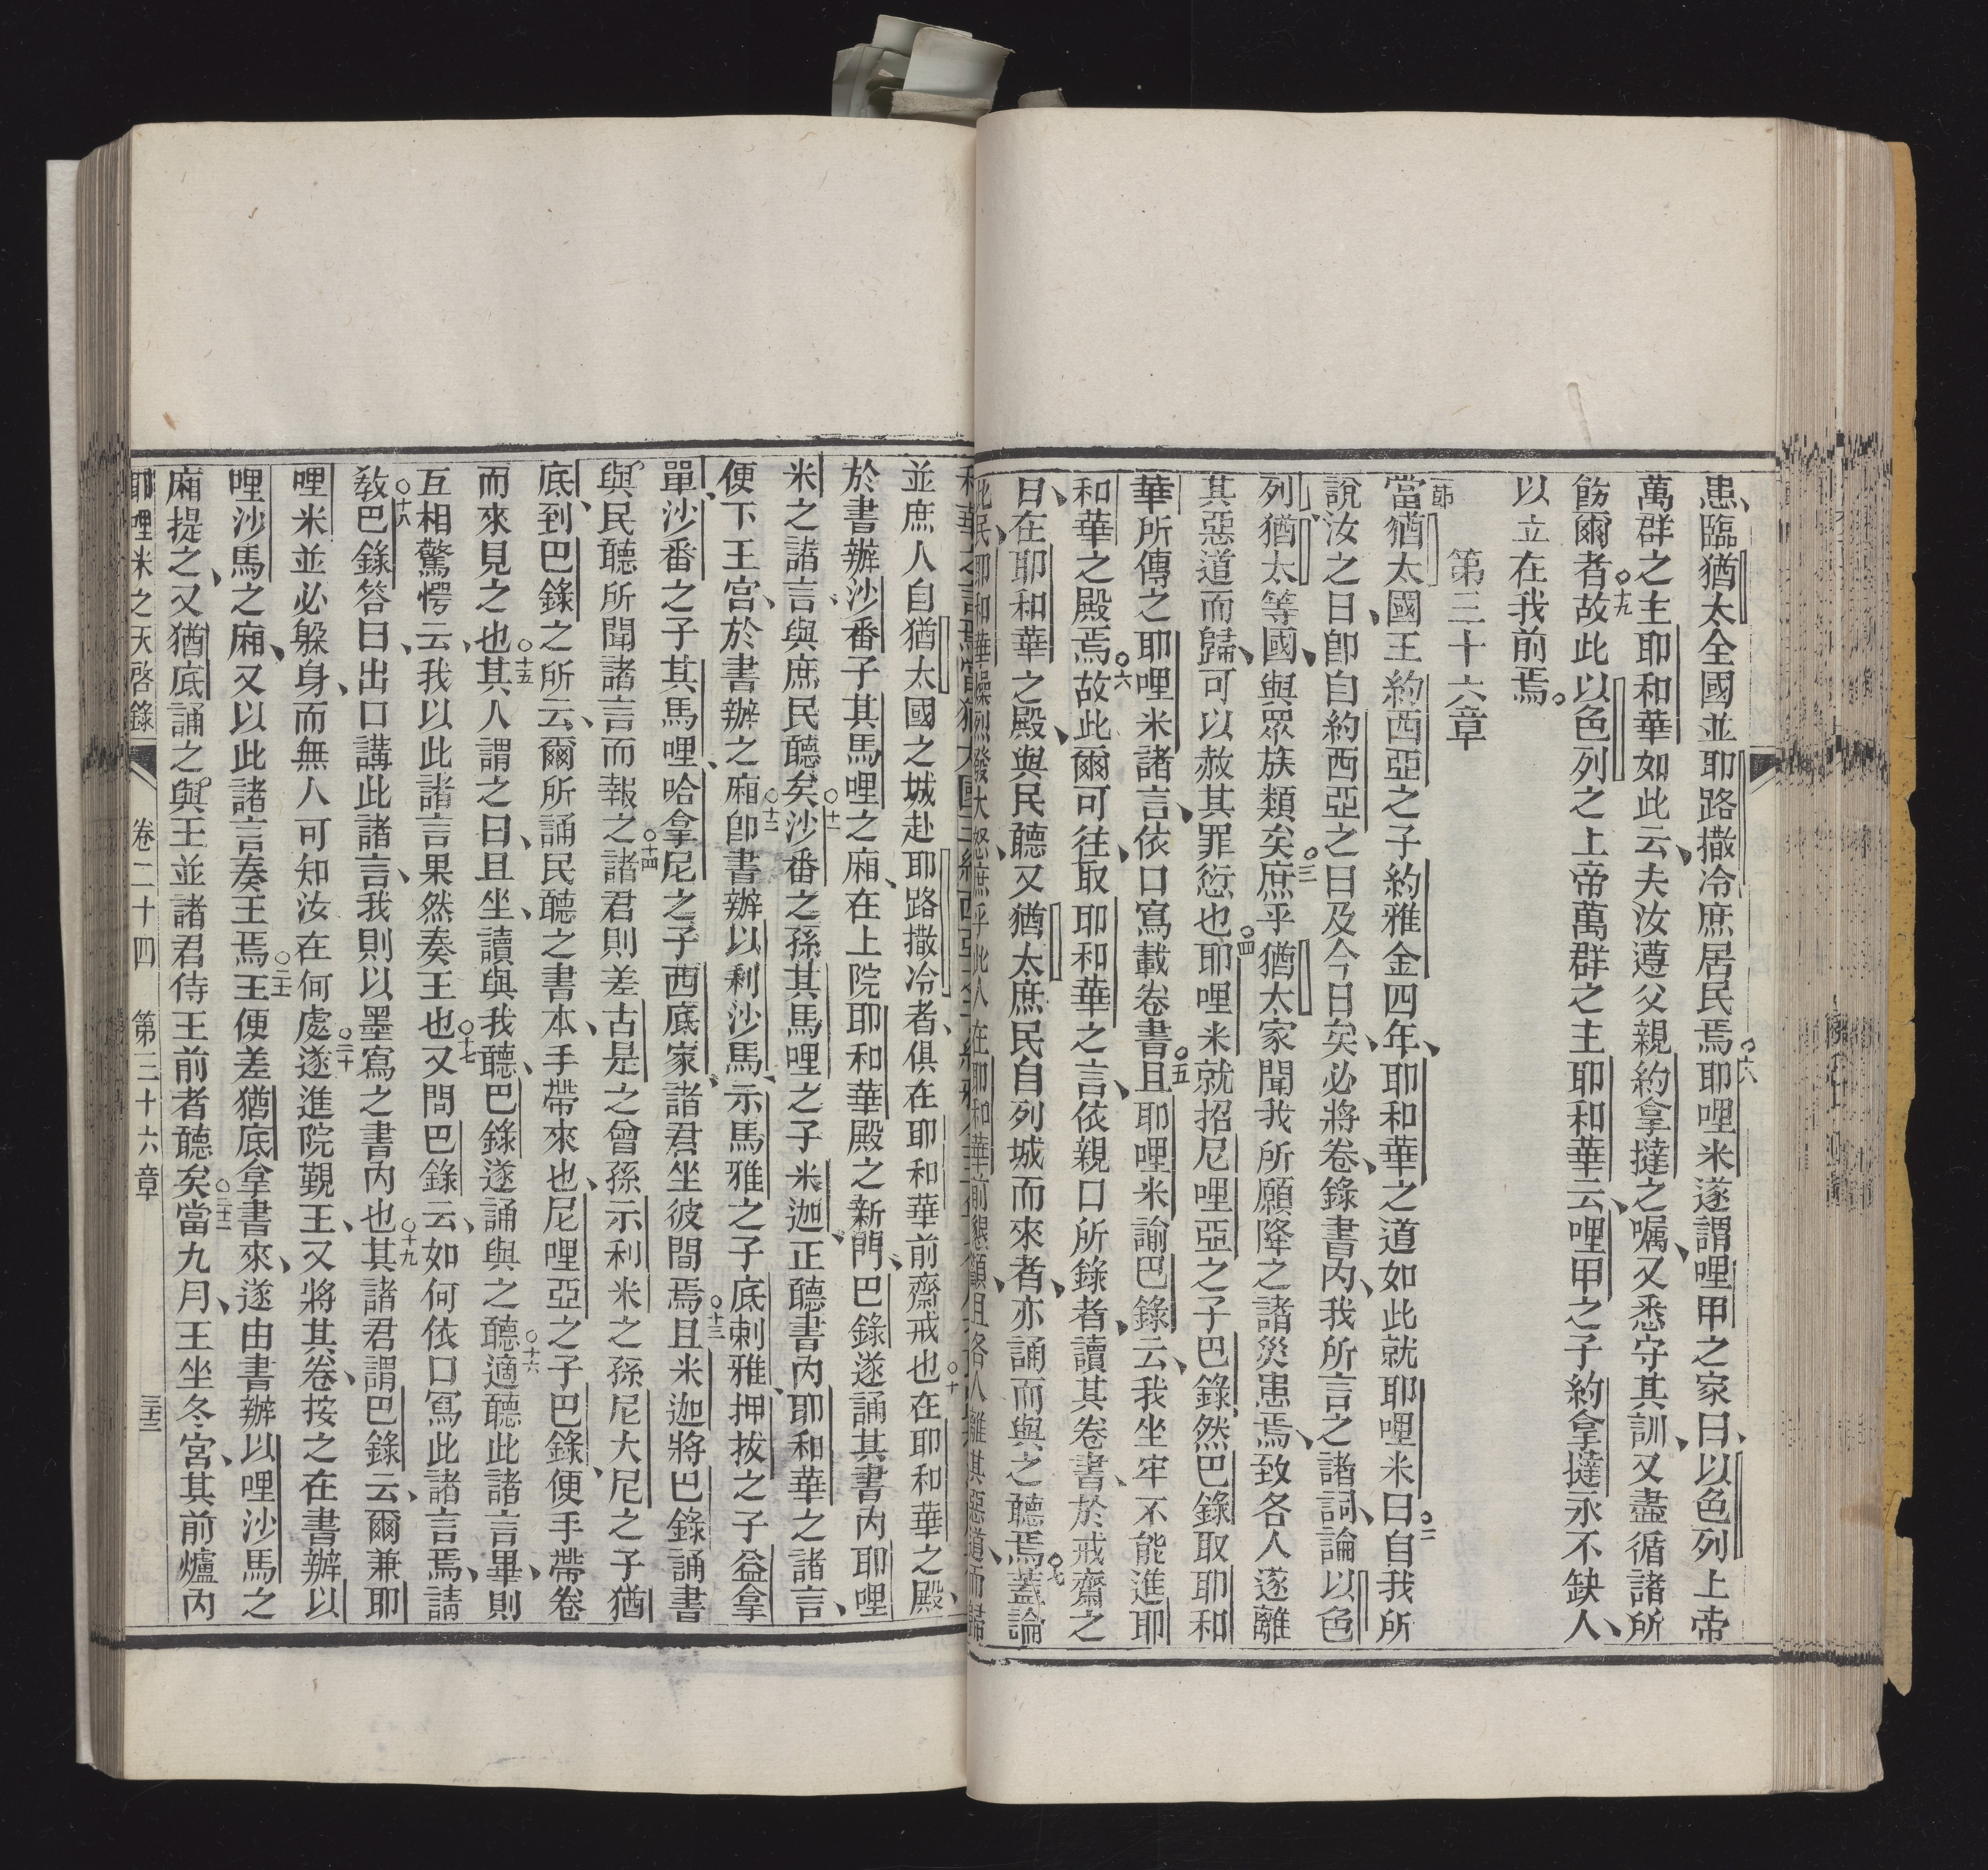 患、臨猶太全國並耶路撒冷庶居民焉○十八耶哩米遂謂哩甲之家曰、以色列上帝
萬群之主耶和華如此云、夫汝遵父親約拿撻之囑、又悉守其訓、又盡循諸所
飭爾者○十九故此以色列之上帝萬群之主耶和華云、哩甲之子約拿撻永不缺人、
以立在我前焉。
第三十六章
節當猶太國王約西亞之子約雅金四年、耶和華之道如此就耶哩米曰○二自我所
說汝之日、卽自約西亞之日及今日矣、必將卷錄書內、我所言之諸詞、論以色
列、猶太等國、與眾族類矣○三庶乎猶太家聞我所願降之諸災患焉、致各人遂離
其惡道而歸、可以赦其罪愆也○四耶哩米就招尼哩亞之子巴錄、然巴錄取耶和
華所傳之耶哩米諸言、依口寫載卷書○五且耶哩米諭巴錄云、我坐牢不能進耶
和華之殿焉○六故此爾可往、取耶和華之言、依親口所錄者、讀其卷書、於戒齋之
日、在耶和華之殿、與民聽又猶太庶民自列城而來者、亦誦而與之聽焉○七蓋論
此民、耶和華燥烈發大怒、庶乎此人在耶和華前懇籲、且各人離其惡道、而歸
並庶人自猶太國之城赴耶路撒冷者、俱在耶和華前齋戒也○十在耶和華之殿、
於書辦沙番子其馬哩之廂、在上院耶和華殿之新門、巴錄遂誦其書內耶哩
米之諸言、與庶民聽矣○十一沙番之孫其馬哩之子米迦、正聽書內耶和華之諸言、
便下王宮、於書辦之廂○十二卽書辦以剩沙馬、示馬雅之子底剌雅、押拔之子益拿
單、沙番之子其馬哩、哈拿尼之子西底家、諸君坐彼間焉○十三且米迦將巴錄誦書
與民聽所聞諸言而報之○十四諸君則差古是之曾孫示利米之孫尼大尼之子猶
底、到巴錄之所云、爾所誦民聽之書本、手帶來也、尼哩亞之子巴錄、便手帶卷
而來見之也○十五其人謂之曰、且坐、讀與我聽、巴錄遂誦與之聽○十六適聽此諸言畢、則
互相驚愕云、我以此諸言果然奏王也○十七又問巴錄云、如何依口寫此諸言焉、請
敎○十八巴錄答曰、出口講此諸言、我則以墨寫之書內也○十九其諸君謂巴錄云、爾兼耶
哩米並必躲身、而無人可知汝在何處○二十遂進院覲王、又將其卷、按之在書辦以
哩沙馬之廂、又以此諸言奏王焉○二十一王便差猶底拿書來、遂由書辦以哩沙馬之
廂提之、又猶底誦之與王並諸君侍王前者聽矣○二十二當九月、王坐冬宮、其前爐內
耶哩米之天啓錄 卷二十四 第三十六章